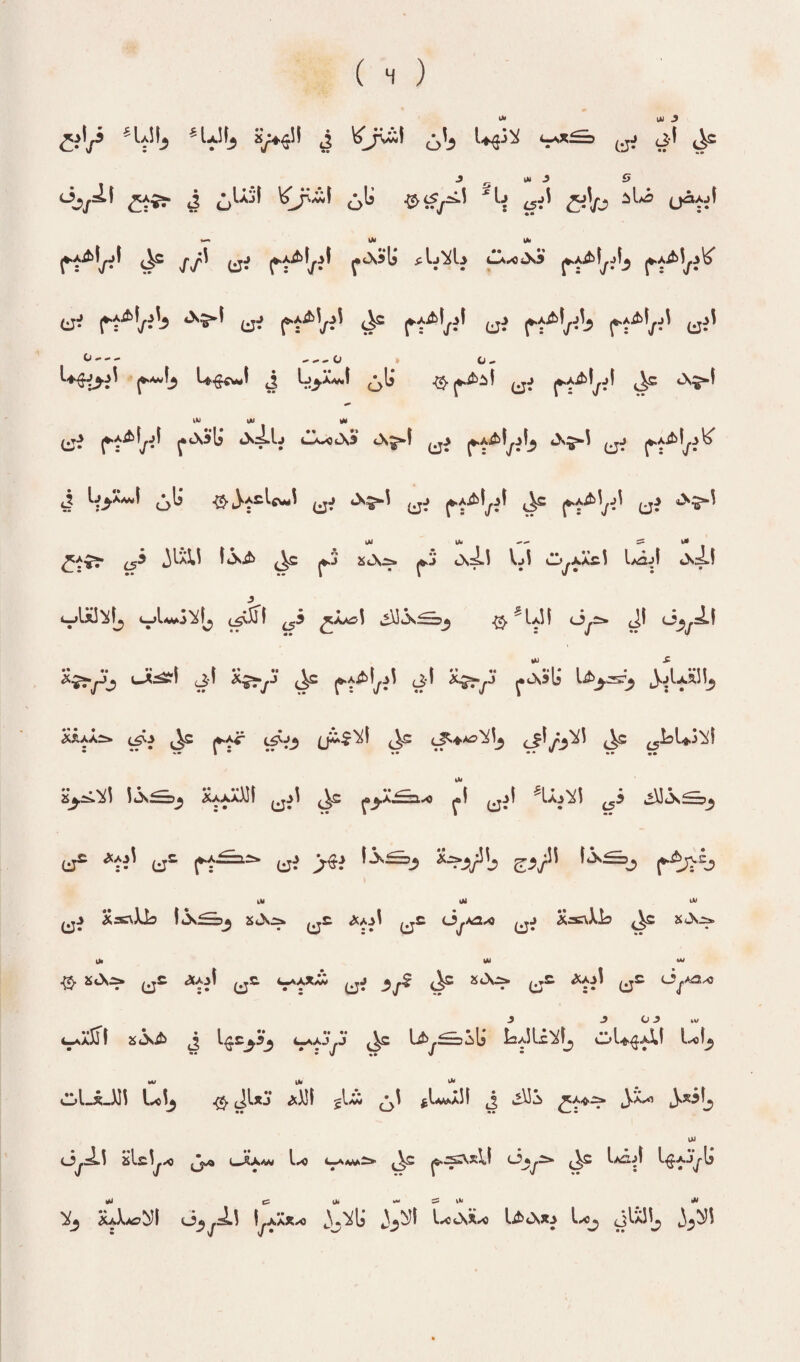 ( ٦ )
على أُبىّ بن كعب لانّهما وان اشتركا فى الهمزة والباء والياء فرابع
ابيض ضاد ورابع ابى ياءٌ اُخرى ۞ فان اشتركا اثنان فى جميع الحروف
كابراهيم وابراهيم قدّمت بالآباء فاقدّم ابراهيم بن ازر على ابراهيم
ابن ابراهيم وابراهيم بن ابراهيم على ابراهيم بن احمد وابراهيم بن
احمد على ابراهيم بن ادهم ۞ فان استويا فى اسمهما واسم ابويهما
كابراهيم بن احمد وابراهيم بن احمد قدّمت بالجدّ فاقدّم ابراهيم بن
احمد بن ابراهيم على ابراهيم بن احمد بن اسماعيل ۞ فان استويا فى
الجدّ ايضا اعتبرت ابا الجدّ ثم جدّه ثم على هذا المثال فى جميع
الحروف الى حرف الياء ۞ وكذلك اصنع فى الكُنى والانساب والالقاب
والقبائل ونحوها فاقدّم ترجمة ابى ابراهيم على ترجمة ابى اسحق وترجمة
الانماطى على الاوزاعى والاصمعى على الاعمش وبنى تميم على بنى حنيفة
وكذلك فى الابناء ابن ام مكتوم على ابن اللتبيّة وكذا الاخوة
وغيرهم وكذا الزوج والزوجة وكذا بهز بن حكيم عن ابيه عن
جدّه على طلحة بن مصرّف عن ابيه عن جدّه وكذا طلحة بن
مصرّف عن ابيه عن جدّه على عمرو بن شعيب عن ابيه عن جدّه ۞
وامّا المُبْهمات والاغاليط فاذكُرها على ترتيب وقوعها فى هذه الكتب
وافعل مثل جميع ذلك فى النساء ان شاء الله تعالى ۞ وامّا اللغات
فارتّبها ايضا على حروف المعجم على حسب ما سبق من مراعاة الحرف
الاوّل والثانى وما بعدهما مقدّما الاوّل فالاوّل معتبرا الحروف الاصليّة ولا